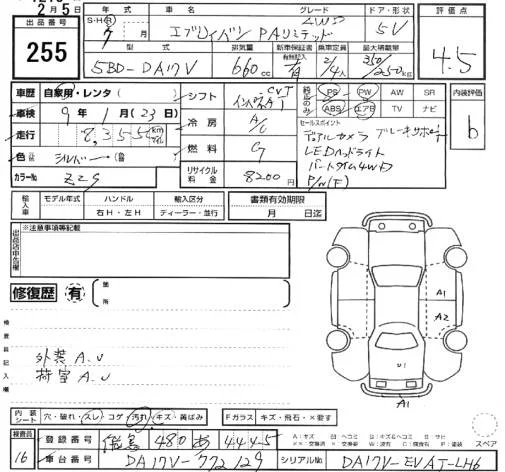 月5日
出品番号
255
年式 車名 グレード ドア・形状 評価点
S・H・R 7 月 エブリイバン PAリミテッド 4WD 5V 4.5
型式 排気量 新車保証書 有無記入 乗車定員 最大積載量
5BD-DA17V 660 cc 有 2/4人 350/250 kg
車歴 自家用・レンタ ( )
車検 9年1月(23)日
走行 8,355 km マイル
色 シルバー
カラーNo. Z2S
シフト インパネ CVT AT
冷房 A/C
燃料 G
リサイクル料金 8200円
純正のみ
PS PW AW SR
ABS エアB TV ナビ
内装評価
b
セールスポイント
デュアルカメラ ブレーキサポート
LEDヘッドライト
パートタイム4WD
P/W(F)
輸入車 モデル年式 ハンドル 輸入区分
年 右H・左H ディーラー・並行
書類有効期限
月 日迄
出品店申告欄
※注意事項等記載
修復歴 有 箇所
検査員記入欄
外装 A.U
荷室 A.U
A1
A2
U1
A1
内装シート 穴・破れ・スレ コゲ・汚れ・キズ・黄ばみ
Fガラス キズ・飛石・×要す
スペア
検査員 16
登録番号 480 あ 4445
車台番号 DA17V-772129
シリアルNo. DA17V-EVAT-LH6